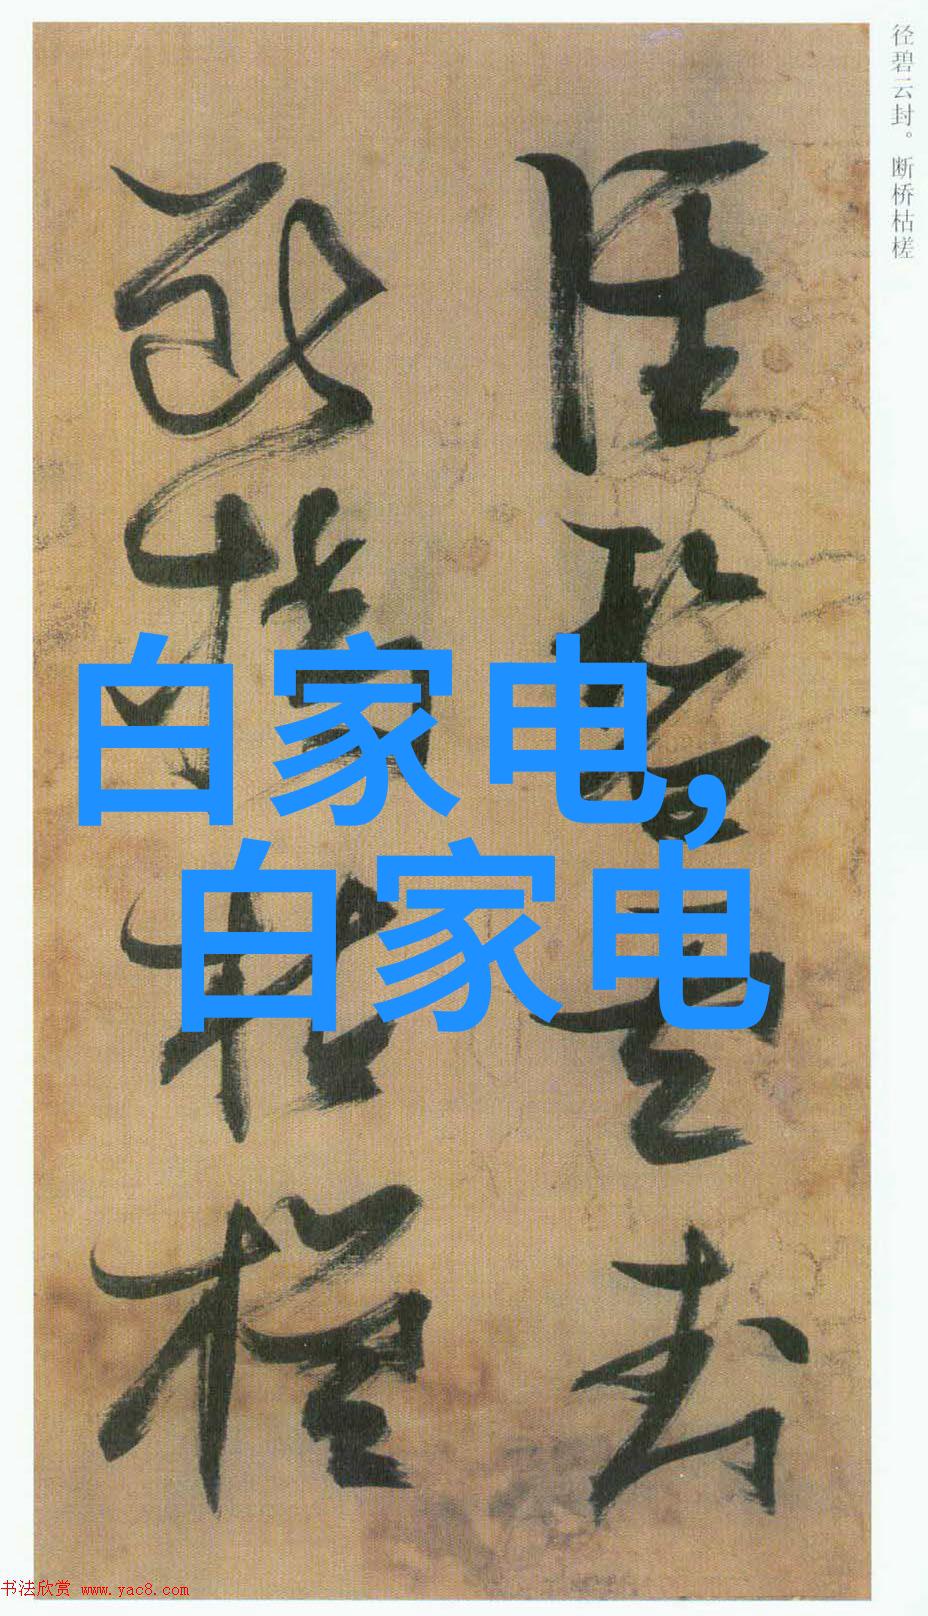 径碧云封。断桥枯槎
径碧云封
断桥枯槎
白家电,
白家电
书法欣赏 www.yac8.com